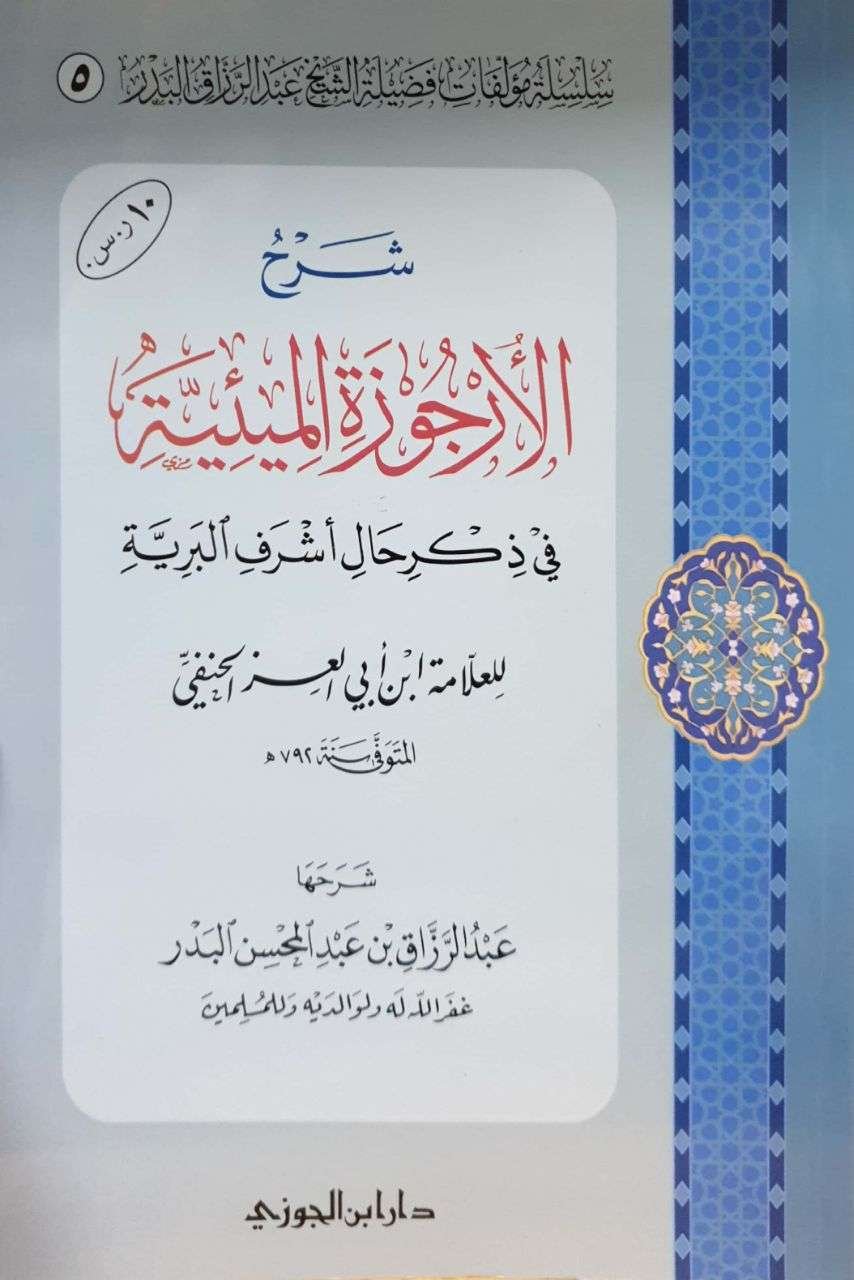 سِلْسِلَة مُؤَلَّفَاتِ فَضِيلَةِ الشَّيْخ عَبْدِ الرَّزَّاقِ البَدْر ٥
١٠ ر.س.
شَرْحُ
الأُرْجُوزَةِ المِيئِيَّةِ
فِي ذِكْرِ حَالِ أَشْرَفِ البَرِيَّةِ
لِلعلّامة ابْن أَبي العِز الحَنَفيِّ
المُتَوَفَّى سَنَة ٧٩٢ هـ
شَرَحَهَا
عَبْدُ الرَّزَّاقِ بْن عَبْدِ المُحْسِن البَدْر
غفَر الله لَه ولوَالديْه وَللمُسْلِمينَ
دار ابن الجوزي